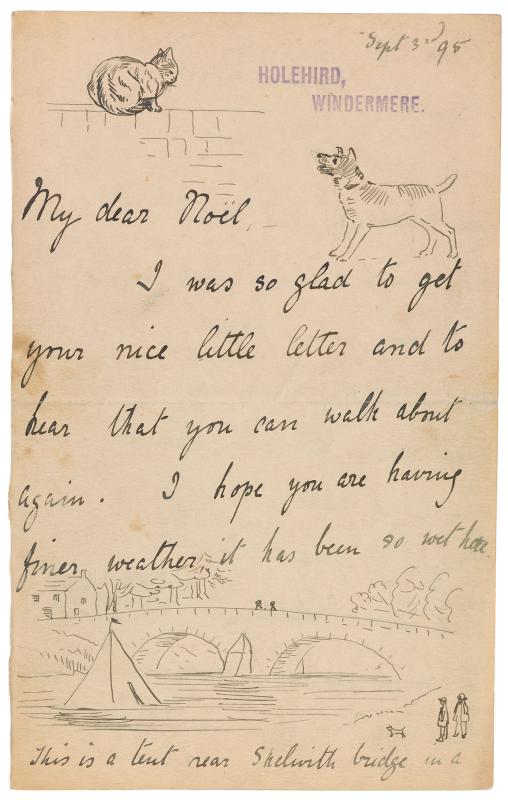 Sept 3rd 95
HOLEHIRD,
WINDERMERE.
My dear Noël,
I was so glad to get
your nice little letter and to
hear that you can walk about
again. I hope you are having
finer weather it has been so wet here.
This is a tent near Skelwith bridge in a